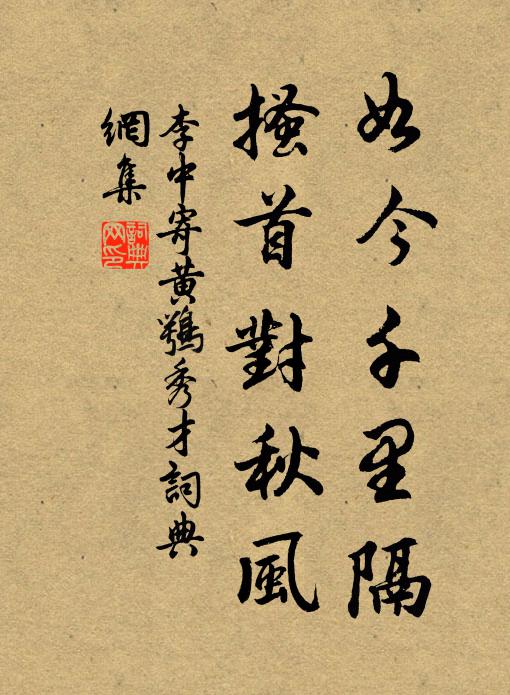 如今千里隔
搔首對秋風
李中寄黃鶚秀才詞典
網集
詞典網印